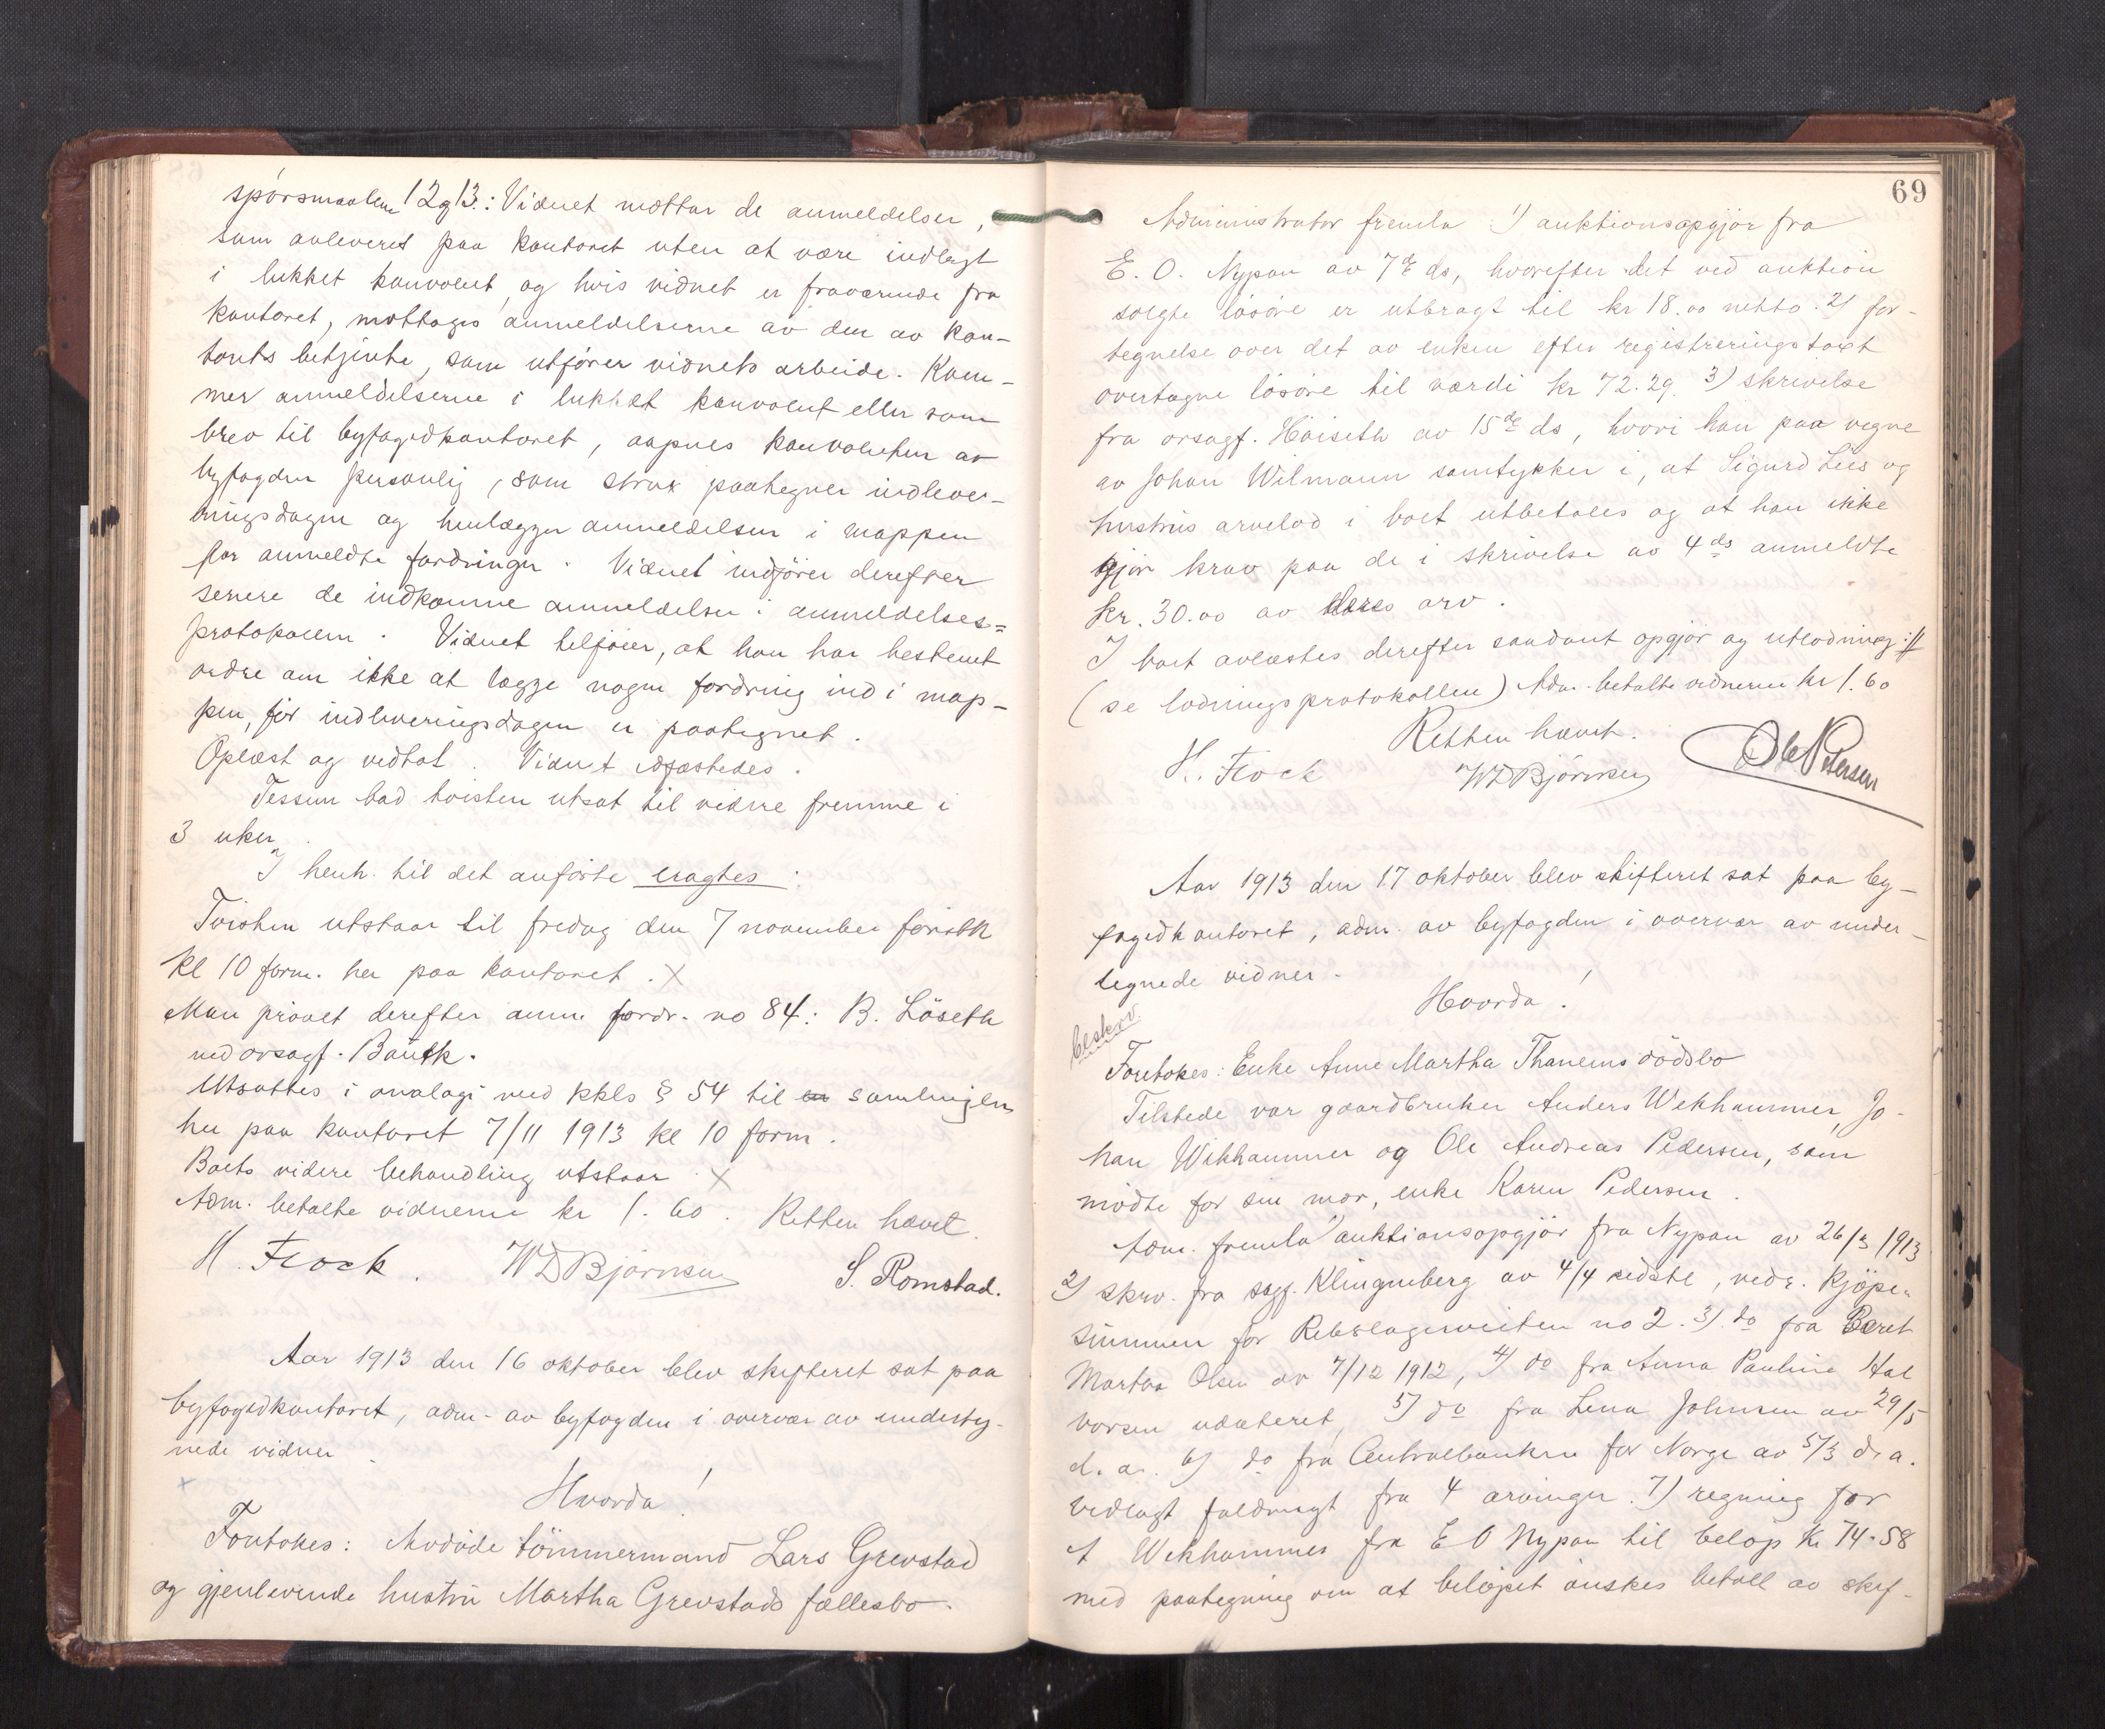 spörsmaalene 12 og 13.: Vidnet mottar de anmeldelser,
som avleveres paa kontoret uten at være indlagt
i lukket konvolut, og hvis vidnet er fraværende fra
kontoret, mottages anmeldelserne av den av kon-
torets betjente, som utförer vidnets arbeide. Kom-
mer anmeldelserne i lukket konvolut eller som
brev til byfogedkontoret, aapnes konvoluten av
byfogden personlig, som strax paategner indlever-
ingsdagen og henlægger anmeldelsen i mappen
for anmeldte fordringer. Vidnet indförer derefter
senere de indkomne anmeldelser i anmeldelses=
protokollen. Vidnet tilföier, at han har bestemt
ordre om ikke at lægge nogen fordring ind i map-
pen, för indleveringsdagen er paategnet.
Oplæst og vedtat. Vidnet edfæstedes.
Tessem bad tvisten utsat til videre fremme i
3 uker.
I henh. til det anförte eragtes:
Tvisten utstaar til fredag den 7 november förstk
kl 10 form. her paa kontoret. X
Man prövet derefter anm. fordr. no 84: B. Löseth
ved orsagf. Bauck.
Utsattes i analogi med kkls § 54 til samlingen
her paa kontoret 7/11 1913 kl 10 form.
Boets videre behandling utstaar X
Adm. betalte vidnerne kr 1.60. Retten hævet.
H. Flock. WDBjörnsen S. Romstad.
Aar 1913 den 16 oktober blev skifteret sat paa
byfogedkontoret, adm. av byfogden i overvær av underteg-
nede vidner.
Hvorda!
Foretokes: Avdöde tömmermand Lars Grevstad
og gjenlevende hustru Martha Grevstads fællesbo.
69
Administrator fremla 1) auktionsopgjör fra
E. O. Nypan av 7de ds, hvorefter det ved auktion
solgte lösöre er utbragt til kr 18.00 netto. 2) for-
tegnelse over det av enken efter registreringstaxt
overtagne lösöre til værdi kr 72.29. 3) skrivelse
fra orsagf. Höiseth av 15de ds, hvori han paa vegne
av Johan Wilmann samtykker i, at Sigurd Lies og
hustrus arvelod i boet utbetales og at han ikke
gjör krav paa de i skrivelse av 4 ds anmeldte
kr. 30.00 av deres arv.
I boet avlæstes derefter saadant opgjör og utlodning: //
(se lodningsprotokollen) Adm. betalte vidnerne kr 1.60
Retten hævet.
H. Flock WDBjörnsen Ole Petersen
Aar 1913 den 17 oktober blev skifteret sat paa by-
fogedkontoret, adm. av byfogden i overvær av under-
tegnede vidner.
Hvorda!
beskrev.
Foretokes: Enke Anne Martha Thanems dödsbo
Tilstede var gaardbruker Anders Wekhammer, Jo-
han Wikhammer og Ole Andreas Pedersen, som
mödte for sin mor, enke Karen Pedersen.
Adm. fremla 1) auktionsopgjör fra Nypan av 26/3 1913
2) skrv. fra sagf. Klingenberg av 4/4 sidstl, vedr. kjöpe-
summen for Rebslagerveiten no 2. 3) do fra Beret
Martha Olsen av 7/12 1912, 4) do fra Anna Pauline Hal
vorsen udateret, 5) do fra Lena Johnsen av 29/5
d. a. 6) do fra Centralbanken for Norge av 5/3 d. a.
vedlagt fuldmagt fra 4 arvinger. 7) regning for
A Wekhammer fra E O Nypan til belöp kr 74.58
med paategning om at belöpet önskes betalt av skif-